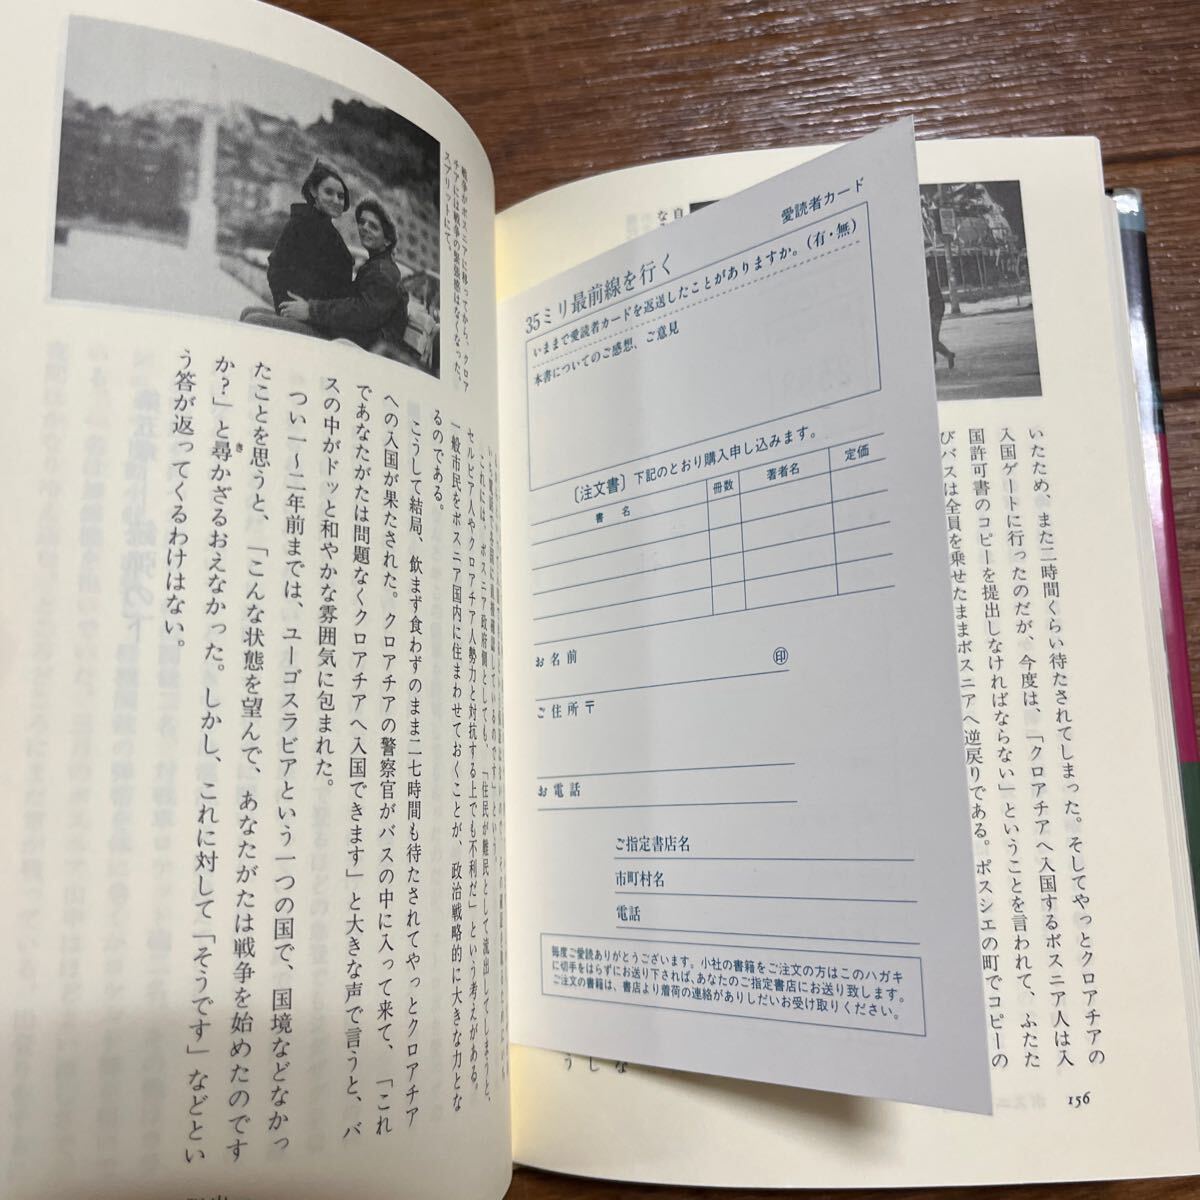 いたため、また二時間くらい待たされてしまった。そしてやっとクロアチアの
入国ゲートに行ったのだが、今度は、「クロアチアへ入国するボスニア人は入
国許可書のコピーを提出しなければならない」ということを言われて、ふたた
びバスは全員を乗せたままボスニアへ逆戻りである。ボスシエの町でコピーの
156
愛読者カード
35ミリ最前線を行く
いままで愛読者カードを返送したことがありますか。（有・無）
本書についてのご感想、ご意見
〔注文書〕下記のとおり購入申し込みます。
書 名 冊数 著者名 定価
お名前 ㊞
ご住所〒
お電話
ご指定書店名
市町村名
電話
毎度ご愛読ありがとうございます。小社の書籍をご注文の方はこのハガキ
に切手をはらずにお送り下されば、あなたのご指定書店にお送り致します。
ご注文の書籍は、書店より着荷の連絡がありしだいお受け取りください。
戦争がボスニアに移ってから、クロア
チアには戦争の緊張感はなくなった。
スプリットにて。
これには、ボスニア政府側としても、「住民が難民として流出してしまうと、
セルビア人やクロアチア人勢力と対抗する上でも不利だ」という考えがある。
一般市民をボスニア国内に住まわせておくことが、政治戦略的に大きな力とな
るのである。
こうして結局、飲まず食わずのまま二七時間も待たされてやっとクロアチア
への入国が果たされた。クロアチアの警察官がバスの中に入って来て、「これ
であなたがたは問題なくクロアチアへ入国できます」と大きな声で言うと、バ
スの中がドッと和やかな雰囲気に包まれた。
つい一〜二年前までは、ユーゴスラビアという一つの国で、国境などなかっ
たことを思うと、「こんな状態を望んで、あなたがたは戦争を始めたのです
か？」と尋かざるおえなかった。しかし、これに対して「そうです」などとい
う答が返ってくるわけはない。